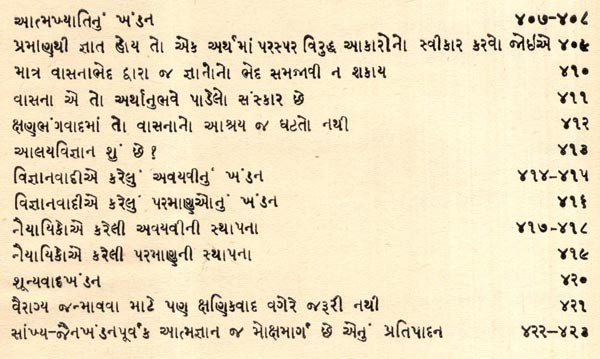 આત્મખ્યાતિનું ખંડન ૪૦૭-૪૦૮
પ્રમાણથી જ્ઞાત હોય તો એક અર્થમાં પરસ્પર વિરુદ્ધ આકારોનો સ્વીકાર કરવો જોઈએ ૪૦૯
માત્ર વાસનાભેદ દ્વારા જ જ્ઞાનોનો ભેદ સમજાવી ન શકાય ૪૧૦
વાસના એ તો અર્થાનુભવે પાડેલો સંસ્કાર છે ૪૧૧
ક્ષણભંગવાદમાં તો વાસનાનો આશ્રય જ ઘટતો નથી ૪૧૨
આલયવિજ્ઞાન શું છે? ૪૧૩
વિજ્ઞાનવાદીએ કરેલું અવયવીનું ખંડન ૪૧૪-૪૧૫
વિજ્ઞાનવાદીએ કરેલું પરમાણુઓનું ખંડન ૪૧૬
નૈયાયિકોએ કરેલી અવયવીની સ્થાપના ૪૧૭-૪૧૮
નૈયાયિકોએ કરેલી પરમાણુની સ્થાપના ૪૧૯
શૂન્યવાદખંડન ૪૨૦
વૈરાગ્ય જન્માવવા માટે પણ ક્ષણિકવાદ વગેરે જરૂરી નથી ૪૨૧
સાંખ્ય-જૈનખંડનપૂર્વક આત્મજ્ઞાન જ મોક્ષમાર્ગ છે એનું પ્રતિપાદન ૪૨૨-૪૨૩